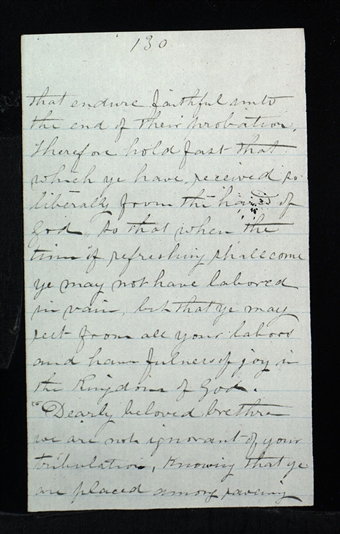 130
that endure faithful unto
the end of their probation,
Therefore hold fast that
which ye have received so
liberally from the hand of
God, so that when the
time of refreshing shall come
ye may not have labored
in vain, but that ye may
rest from all your labors
and have fulness of joy in
the Kingdom of God.
"Dearly beloved brethren
we are not ignorant of your
tribulation, knowing that ye
are placed among raving